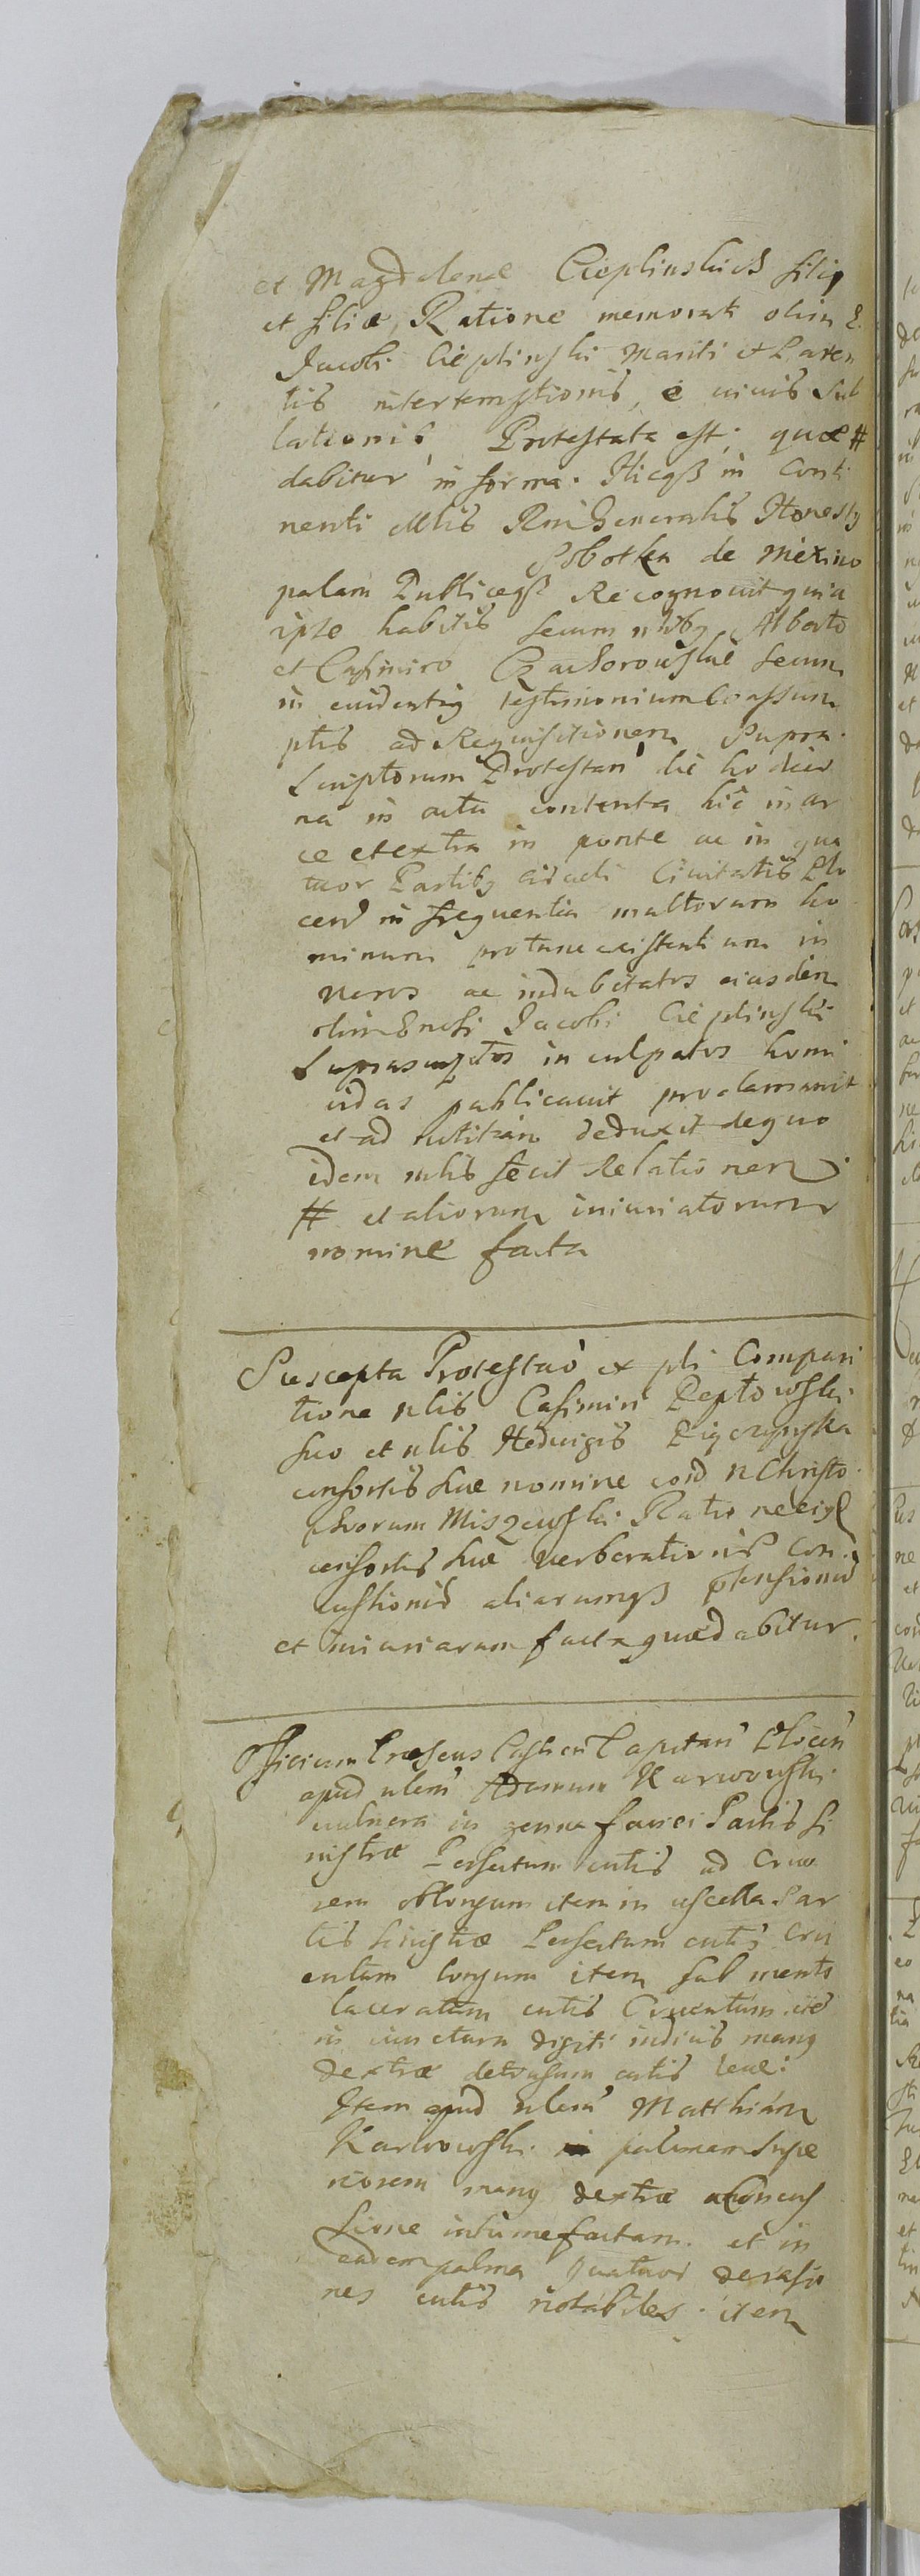 et Magdalenæ Cieplinskich filij
et filiæ, Ratione memorati olim E.
Jacobi Cieplinski Mariti et Paren
tis interemptionis, e vivis sub
lationis Protestata est; quæ #
dabitur in forma. Hicqß in Conti
nenti Mlis Rni Generalis Honesty
Sobotka de Mixino
palam Publiceqß Recognouit quia
ipse habitis secum nlibg Alberto
et Casimiro Czachorowskie secum
in euidentig testimonium Coassum
ptis ad Requisitionem Supra
Scriptorum Protestan hic hodier
na in actu contenta hic in ar
ce et extra in ponte ac in qua
tuor Partibg circuli Ciuitatis Plo
cen in frequentia multorum ho
minum protunc existentium in
veros ac indubitatos eiusdem
olim Enesi Jacobi Cieplinski
Suprascriptos inculpatos homi
cidas publicauit proclamauit
et ad notitiam deduxit de quo
idem mlis fecit Relationem
# et aliorum iniuriatorum
nomine facta
Suscepta Protestao ex pli Compari
tione nlis Casimiri Peptowski
suo et nlis Hedvigis
consortis suæ nomine cord n Christo
phorum Miszewski Ratione eiqß
consortis suæ verberationis con
custionis aliarumqß ptensionu
et iniuriarum facta quæ dabitur.
Officium Præsens Castren Capitan Plocen
apud nlem Adamum Karwowski
vulnera in genna faciei Partis si
nistræ Persectum cutis ad cruo
rem oblongum item in ascella Par
tis sinistræ Persectum cutis cru
entum longum item sub mento
laceratum cutis Cruentum ite
in iunctura digiti indicis mang
dextræ detrusum cutis leue:
Item apud nlem Matthiam
Karwowski palmam supe
riorem mang dextræ a Concus
sione intumefactam. et in
eadem palma quatuor derasio
nes cutis notabiles. item